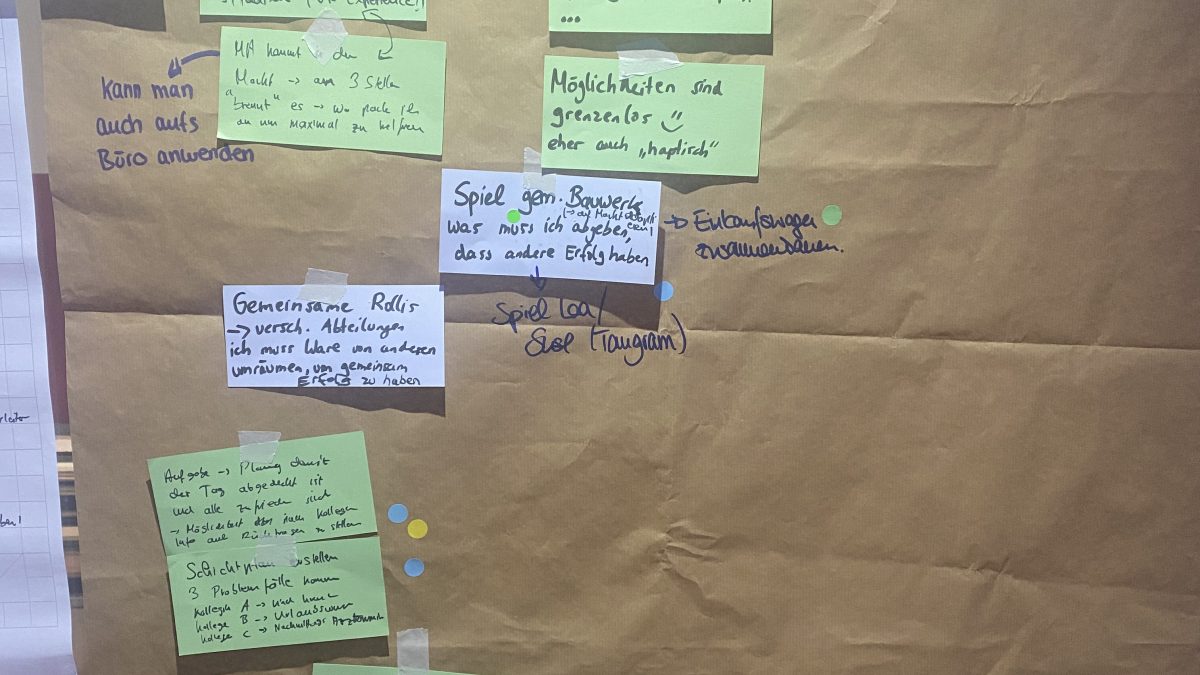 Experience!!
...
MA kommt in den
Markt → an 3 Stellen
"brennt" es → wo pack ich
an um maximal zu helfen
Kann man
auch aufs
Büro anwenden
Möglichkeiten sind
grenzenlos
eher auch „haptisch"
Spiel gem. Bauwerk
was muss ich abgeben,
dass andere Erfolg haben
→ Einkaufswagen
zusammenbauen.
Spiel
(Tangram)
Gemeinsame Rollis
→ versch. Abteilungen
ich muss Ware von anderen
umräumen, um gemeinsam
Erfolg zu haben
Aufgabe → Planung damit
der Tag abgedeckt ist
und alle zufrieden sind
→ Möglichkeit den Kollegen
Info auf Rückfragen zu stellen
Schichtplan erstellen
3 Problemfälle kommen
Kollegin A → Kind krank
Kollege B → Urlaubs
Kollege C → Nachmittags